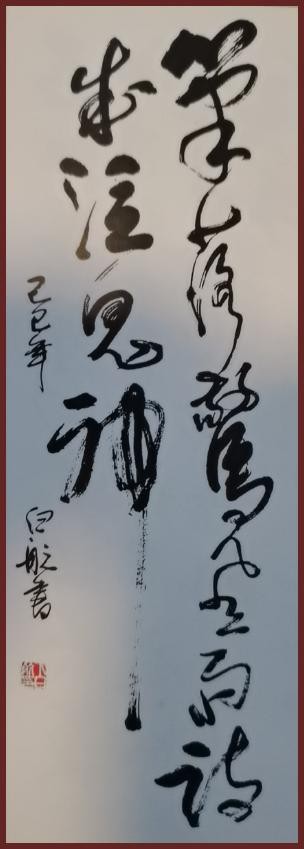 筆落驚風雨詩
成泣鬼神
己巳年 白航書